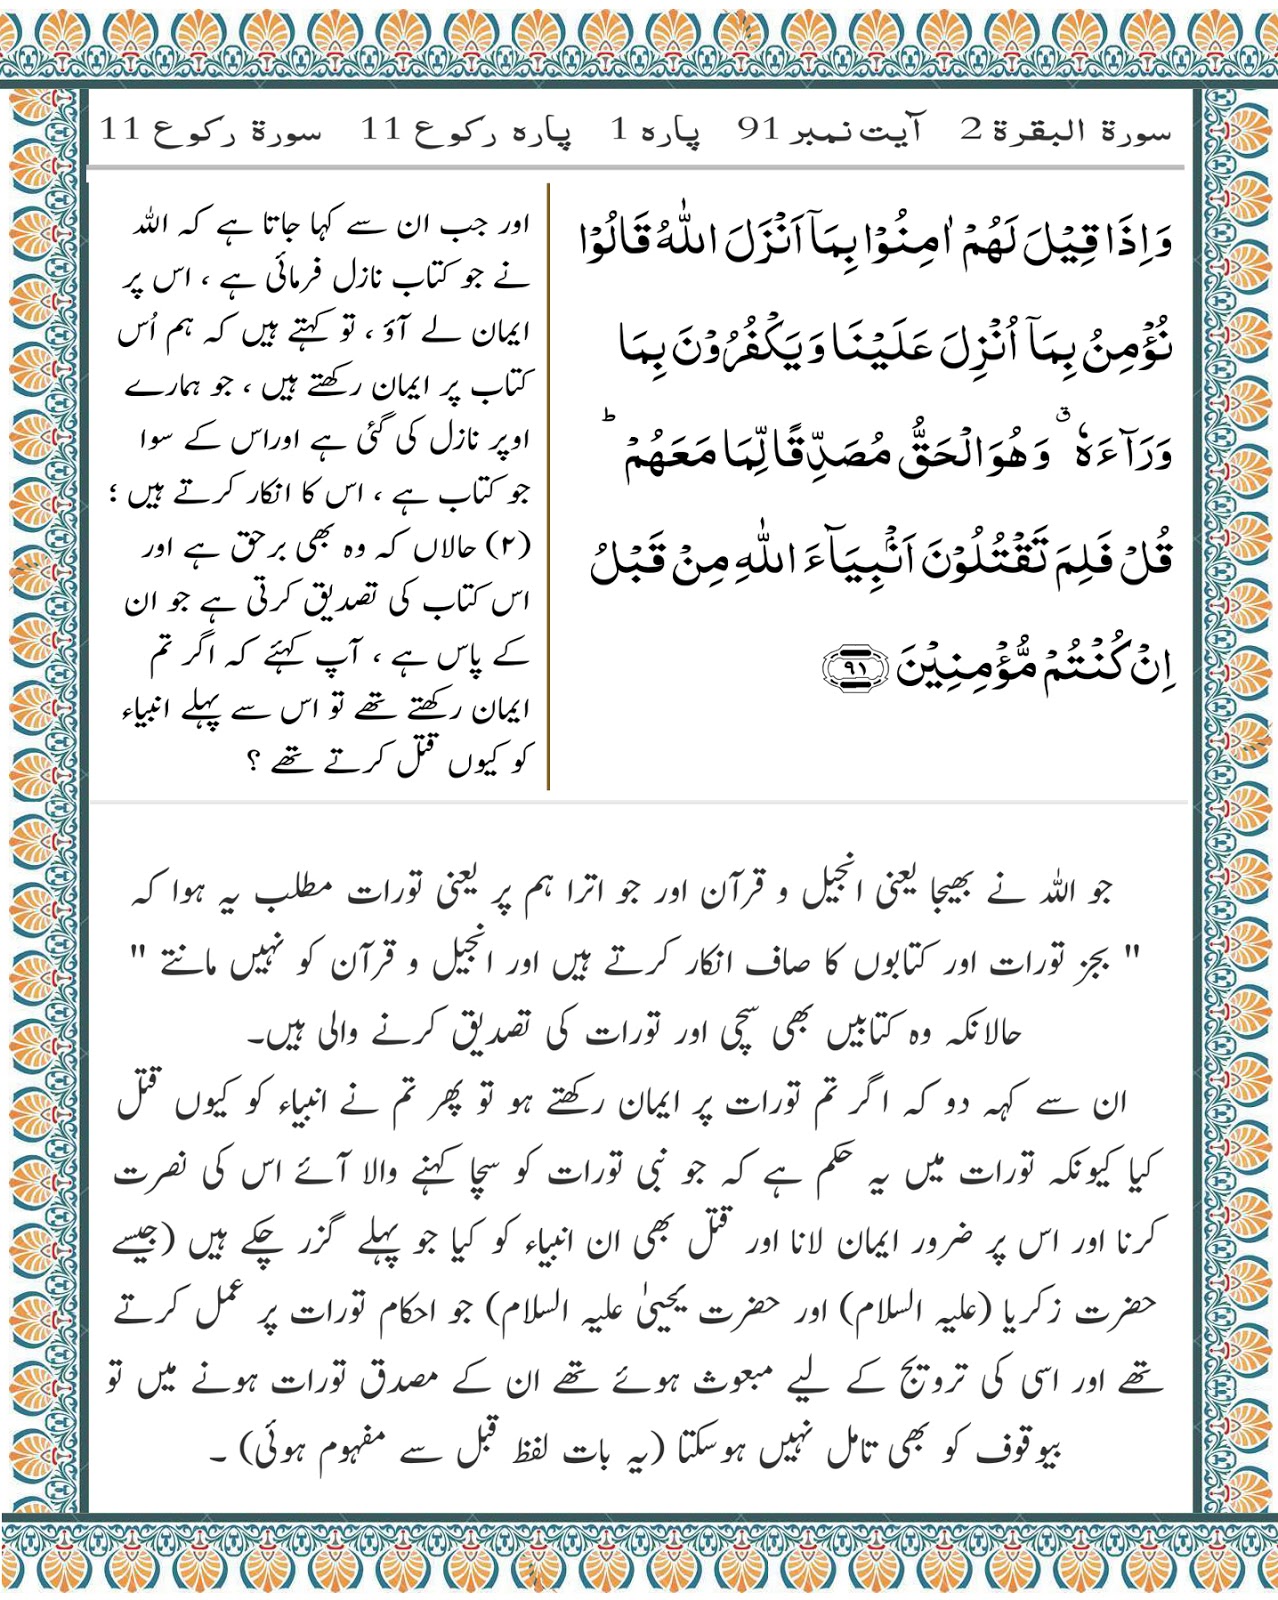 سورۃ البقرۃ 2 آیت نمبر 91 پارہ 1 پارہ رکوع 11 سورۃ رکوع 11
وَاِذَا قِيْلَ لَهُمْ اٰمِنُوْا بِمَآ اَنْزَلَ اللّٰهُ قَالُوْا
نُؤْمِنُ بِمَآ اُنْزِلَ عَلَيْنَا وَيَكْفُرُوْنَ بِمَا
وَرَآءَهٗ ۤ وَهُوَ الْحَقُّ مُصَدِّقًا لِّمَا مَعَهُمْ ؕ
قُلْ فَلِمَ تَقْتُلُوْنَ اَنْۢبِيَآءَ اللّٰهِ مِنْ قَبْلُ
اِنْ كُنْتُمْ مُّؤْمِنِيْنَ ٩١
اور جب ان سے کہا جاتا ہے کہ اللہ
نے جو کتاب نازل فرمائی ہے ، اس پر
ایمان لے آؤ ، تو کہتے ہیں کہ ہم اُس
کتاب پر ایمان رکھتے ہیں ، جو ہمارے
اوپر نازل کی گئی ہے اوراس کے سوا
جو کتاب ہے ، اس کا انکار کرتے ہیں ؛
(۲) حالاں کہ وہ بھی برحق ہے اور
اس کتاب کی تصدیق کرتی ہے جو ان
کے پاس ہے ، آپ کہئے کہ اگر تم
ایمان رکھتے تھے تو اس سے پہلے انبیاء
کو کیوں قتل کرتے تھے ؟
جو اللہ نے بھیجا یعنی انجیل و قرآن اور جو اترا ہم پر یعنی تورات مطلب یہ ہوا کہ
" بجز تورات اور کتابوں کا صاف انکار کرتے ہیں اور انجیل و قرآن کو نہیں مانتے "
حالانکہ وہ کتابیں بھی سچی اور تورات کی تصدیق کرنے والی ہیں۔
ان سے کہہ دو کہ اگر تم تورات پر ایمان رکھتے ہو تو پھر تم نے انبیاء کو کیوں قتل
کیا کیونکہ تورات میں یہ حکم ہے کہ جو نبی تورات کو سچا کہنے والا آئے اس کی نصرت
کرنا اور اس پر ضرور ایمان لانا اور قتل بھی ان انبیاء کو کیا جو پہلے گزر چکے ہیں (جیسے
حضرت زکریا (علیہ السلام) اور حضرت یحییٰ علیہ السلام) جو احکام تورات پر عمل کرتے
تھے اور اسی کی ترویج کے لیے مبعوث ہوئے تھے ان کے مصدق تورات ہونے میں تو
بیوقوف کو بھی تامل نہیں ہوسکتا (یہ بات لفظ قبل سے مفہوم ہوئی) ۔